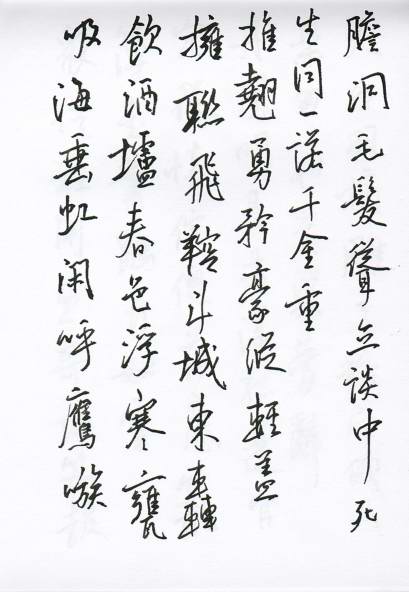 膽洞毛髮聳立談中死
生同一諾千金重
推翹勇矜豪縱輕蓋
擁聯飛鞚斗城東轟
飲酒壚春色浮寒甕
吸海垂虹閑呼鷹嗾